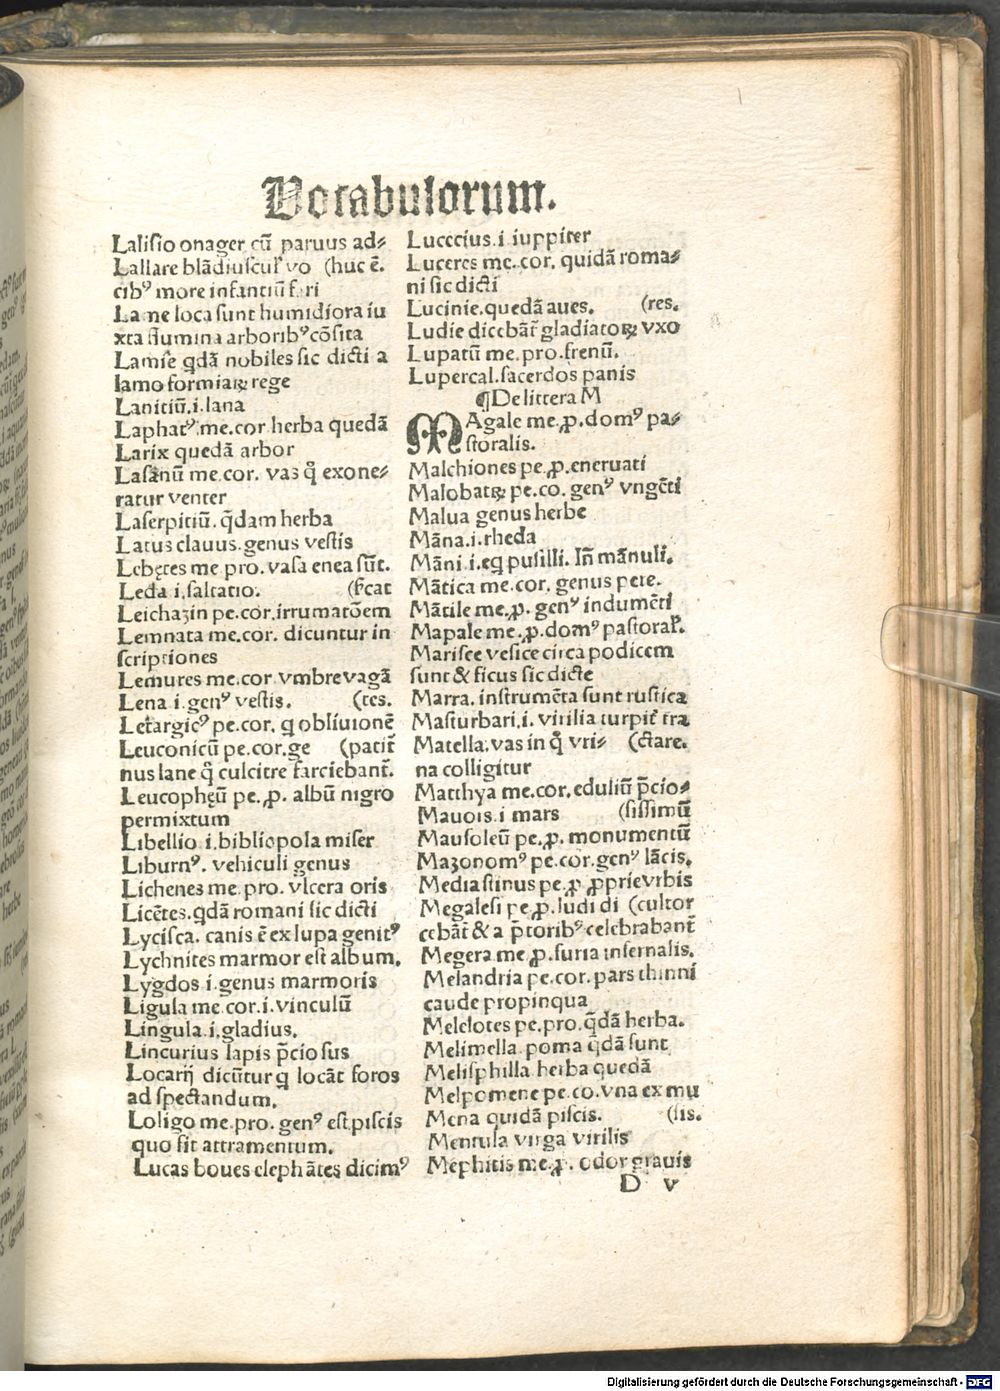 Vocabulorum.
Lalisio onager cū paruus ad⸗
Lallare blādiuscul' vo (huc ē.
cibꝰ more infantiū feri
Lame loca sunt humidiora iu
xta flumina arboribꝰ cōsita
Lamie qdā nobiles sic dicti a
lamo formiaꝝ rege
Lanitiū.i.lana
Laphatꝰ.me.cor herba quedā
Larix quedā arbor
Lasanū me.cor. vas q̄ exone⸗
ratur venter
Laserpitiū. q̄dam herba
Latus clauus.genus vestis
Lebetes me pro. vasa enea sūt.
Leda i.saltatio. (fīcat
Leichazin pe.cor.irrumatōem
Lemnata me.cor. dicuntur in
scriptiones
Lemures me.cor vmbre vagā
Lena i.genꝰ vestis. (tes.
Letargicꝰ pe.cor. q obliuionē
Leuconicū pe.cor.ge (patit̄
nus lane q̄ culcitre farciebant̄.
Leucophęū pe.ꝓ. albū nigro
permixtum
Libellio i.bibliopola miser
Liburnꝰ. vehiculi genus
Lichenes me.pro. vlcera oris
Licētes.qdā romani sic dicti
Lycisca. canis ē ex lupa genitꝰ
Lychnites marmor est album.
Lygdos i.genus marmoris
Ligula me.cor.i.vinculū
Lingula.i.gladius.
Lincurius lapis p̄ciosus
Locarij dicūtur q locāt foros
ad spectandum.
Loligo me.pro. genꝰ est piscis
quo fit attramentum.
Lucas boues elephātes dicimꝰ
Lucceius.i.iuppiter
Luceres me.cor. quidā roma⸗
ni sic dicti
Lucinie.quedā aues. (res.
Ludie dicebāt̄ gladiatoꝝ vxo
Lupatū me.pro.frenū.
Lupercal.sacerdos panis
¶De littera M
MAgale me.ꝓ.domꝰ pa⸗
storalis.
Malchiones pe.ꝓ.eneruati
Malobatꝝ pe.co. genꝰ vngēti
Malua genus herbe
Māna.i.rheda
Māni.i.eq pusilli. In̄ mānuli.
Mātica me.cor. genus pere.
Mātile me.ꝓ. genꝰ indumēti
Mapale me.ꝓ.domꝰ pastoral'.
Marisce vesice circa podicem
sunt & ficus sic dicte
Marra. instrumēta sunt rustica
Masturbari.i. virilia turpit̄ tra
Matella.vas in q̄ vri⸗ (ctare.
na colligitur
Matthya me.cor.eduliū p̄cio⸗
Mauois.i mars (sissimū
Mausoleū pe.ꝓ. monumentū
Mazonomꝰ pe.cor.genꝰ lācis.
Mediastinus pe.ꝓ ꝓprie vrbis
Megalesi pe.ꝓ.ludi di (cultor
cebāt & a p̄toribꝰ celebrabant̄
Megera me.ꝓ.furia infernalis.
Melandria pe.cor. pars thinni
caude propinqua
Melelotes pe.pro.q̄dā herba.
Melimella poma q̄dā sunt
Melisphilla herba quedā
Melpomene pe.co.vna ex mu
Mena quidā piscis. (sis.
Mentula virga virilis
Mephitis me.ꝓ. odor grauis
D v
Digitalisierung gefördert durch die Deutsche Forschungsgemeinschaft - DFG